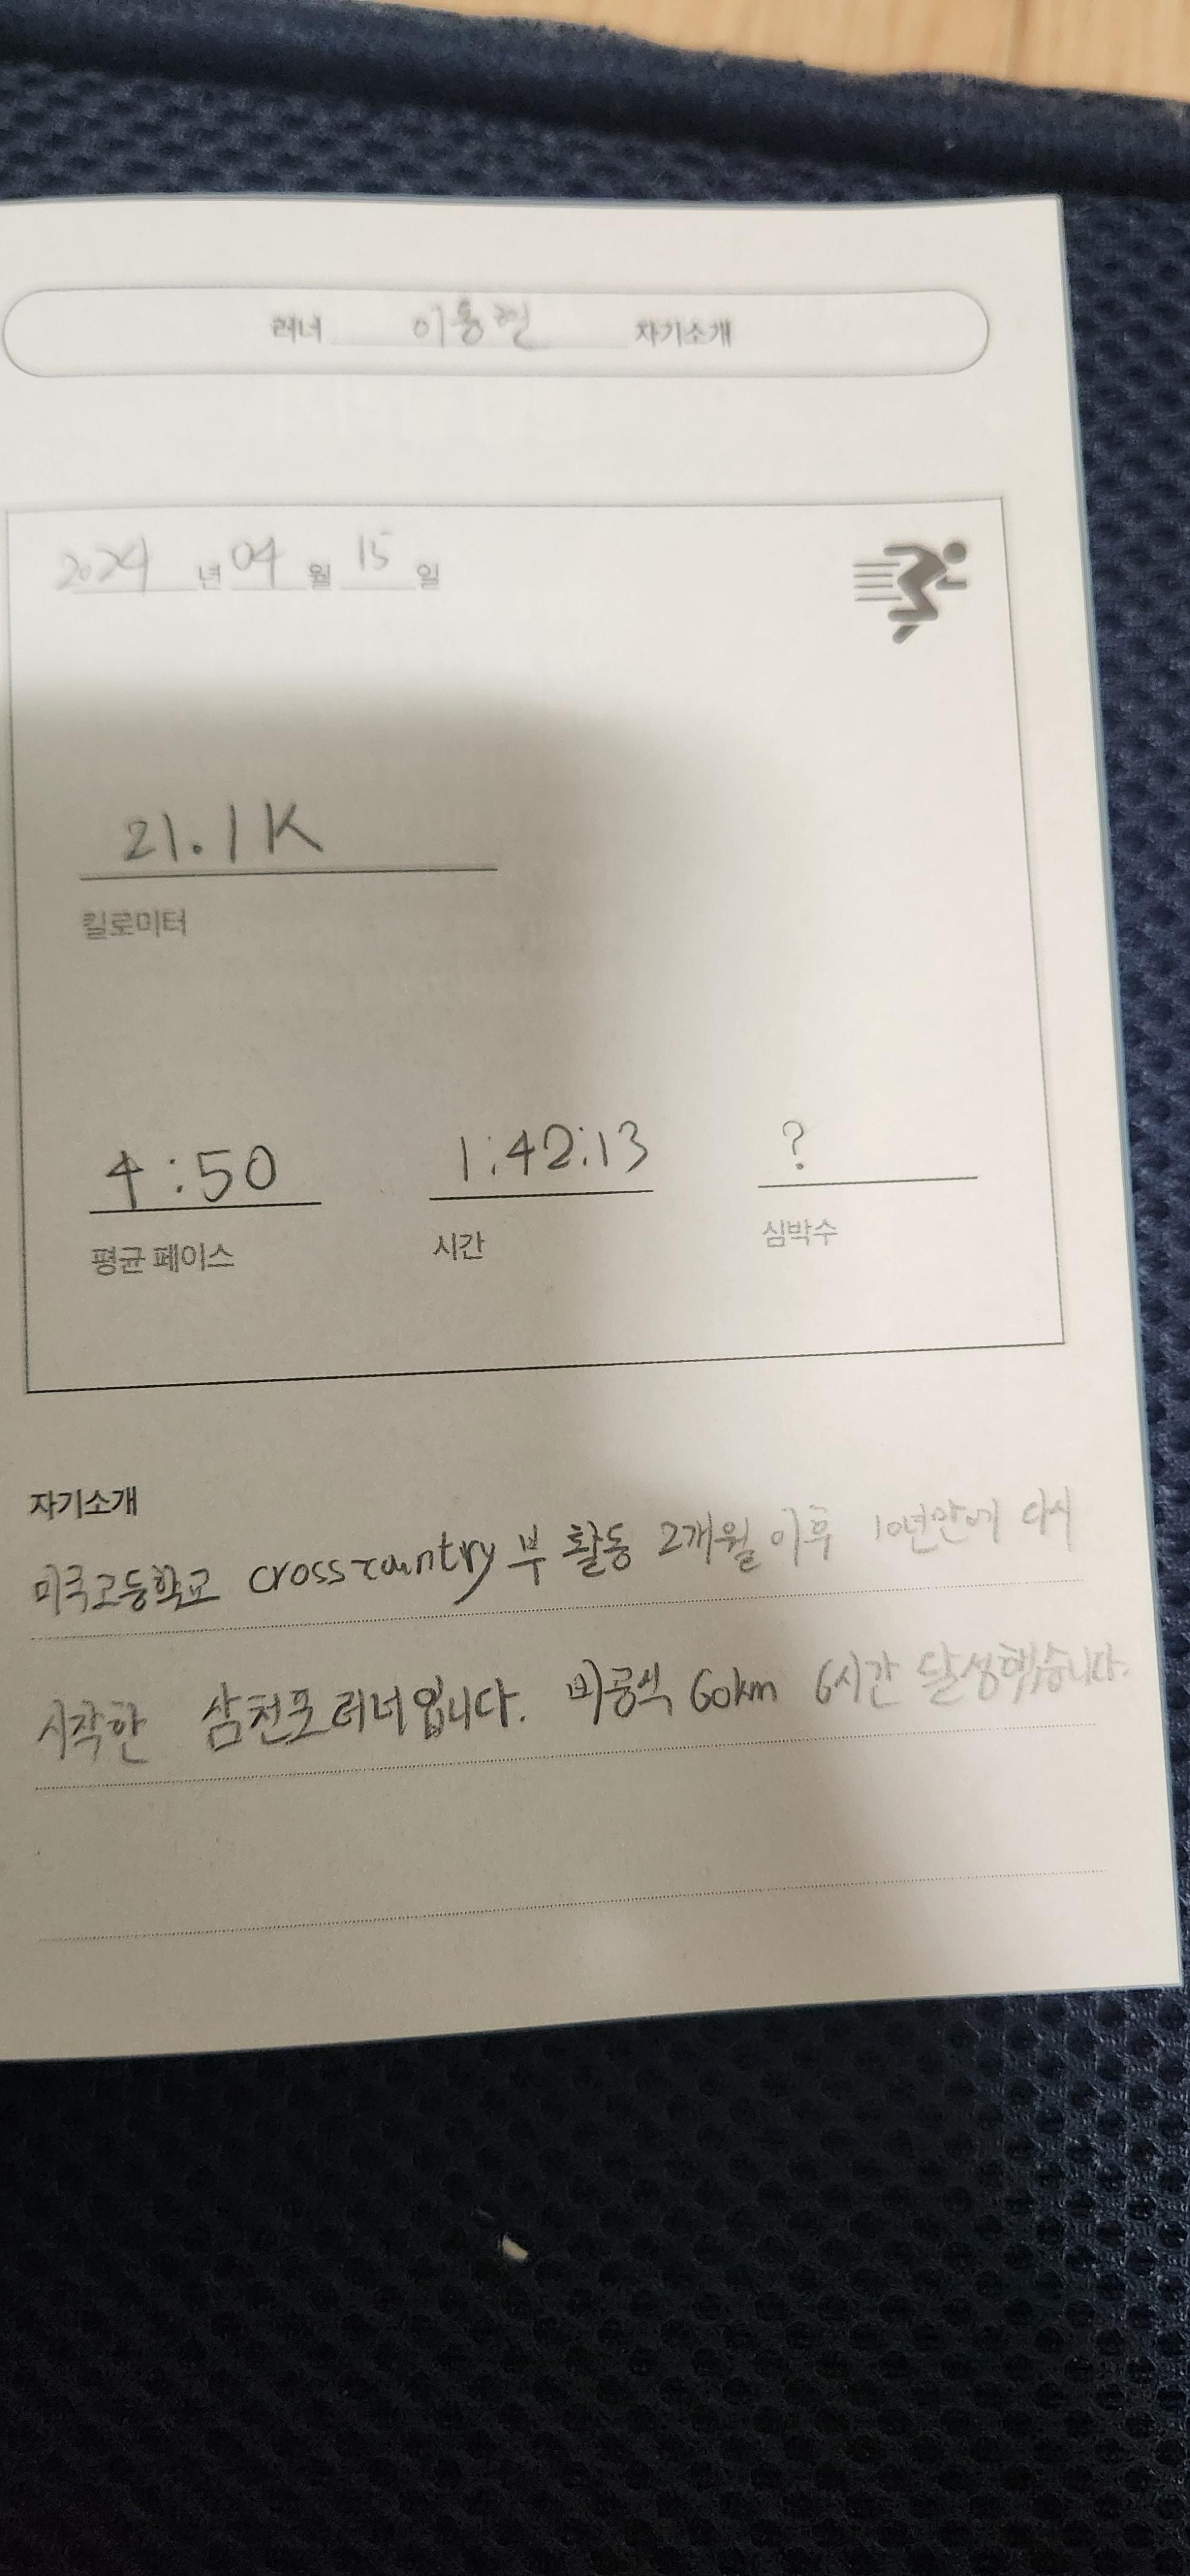 러너 이홍현 자기소개
2024 년 04 월 15 일
21.1K
킬로미터
4:50 1:42:13 ?
평균 페이스 시간 심박수
자기소개
미국고등학교 crosscountry부 활동 2개월 이후 10년만에 다시
시작한 삼천포러너입니다. 비공식 60km 6시간 달성했습니다.